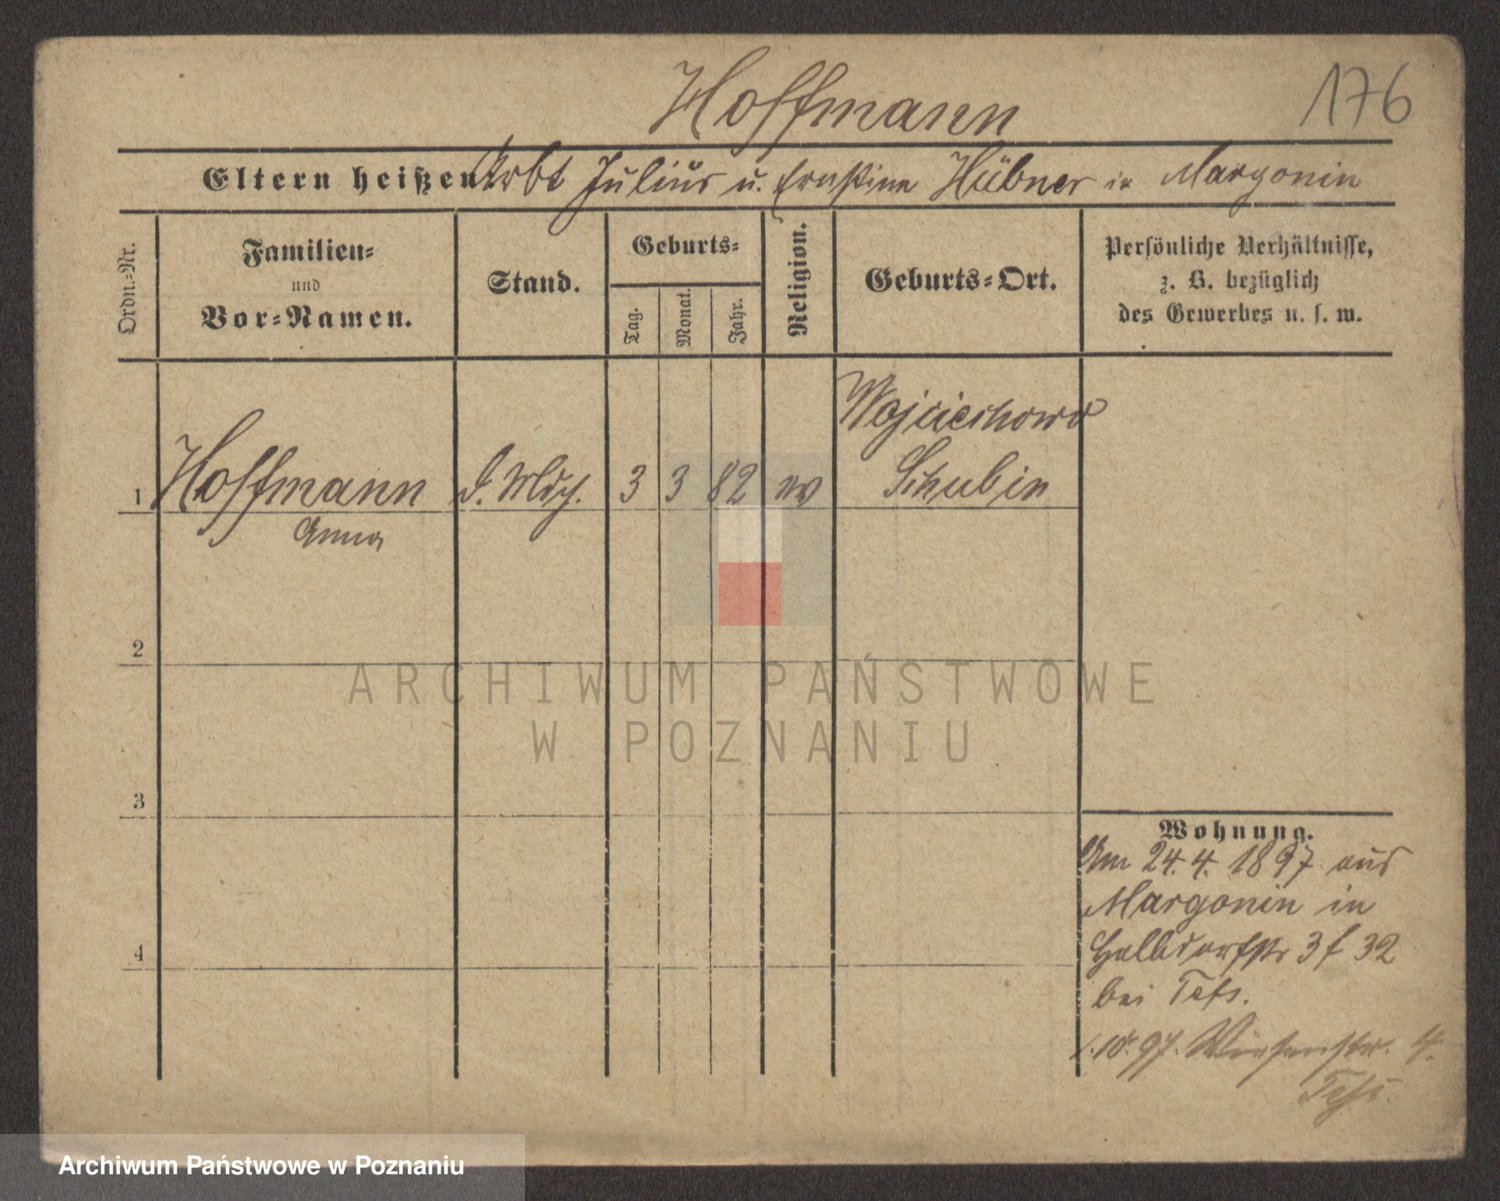 Hoffmann
176
Eltern heißen Arbt Julius u. Ernstine Hübner in Margonin
Ordn.-Nr.
Familien-
und
Vor-Namen.
Stand.
Geburts-
Tag.
Monat.
Jahr.
Religion.
Geburts-Ort.
Persönliche Verhältnisse,
z. B. bezüglich
des Gewerbes u. s. w.
Wojciechowo
1 Hoffmann D. Mdch. 3 3 82 ev Schubin
Anna
2
3
4
Wohnung.
Am 24.4.1897 aus
Margonin in
Halbdorfstr 32
bei Tets.
1.10.97. Wiesenstr. 4.
ARCHIWUM PAŃSTWOWE
W POZNANIU
Archiwum Państwowe w Poznaniu